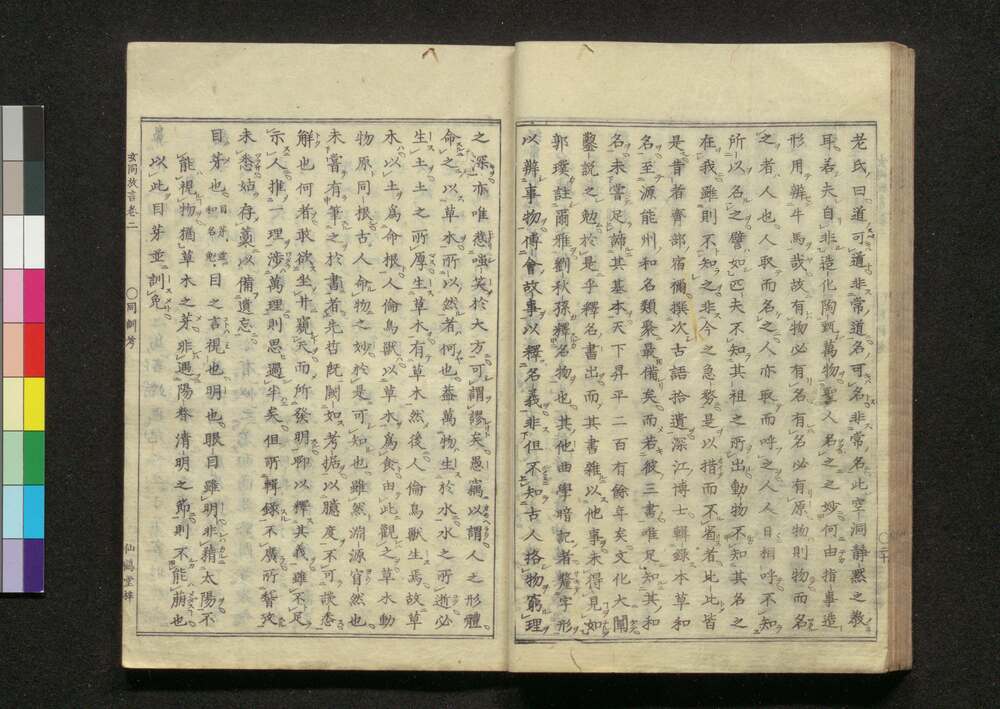 老氏曰。道可道非常道。名可名非常名。此空洞靜黙之敎
耳。若夫自非造化陶甄萬物。聖人名之之妙。何由指事造
形。用辨牛馬哉。故有物必有名。有名必有原。物則物。而名
之者人也。人取而名之。人亦取而呼之。人人日相呼。不知
所以名之。譬如匹夫不知其祖之所出。動物不知其名之
在我。雖則不知之。非今之急務。是以措而不省者比比皆
是。昔者齊部宿禰撰次古語拾遺。深江博士輯錄本草和
名。至源能州和名類聚最備矣。而若彼三書。唯足知其和
名。未嘗足諦其基本。天下昇平二百有餘年矣。文化大闡
鑿説之勉。於是乎釋名書出。而其書雜以他事。未得見如
郭璞註爾雅。劉秋孫釋名物也。其他曲學暗記者。釐字形
以辨事物。傅會故事以釋名義。非但不知古人格物窮理
之深。亦唯悲嗤笑於大方。可謂謬矣。愚竊以謂人之形體
命之以草木。所以然者何也。蓋萬物生於水。水之所逝必
生土。土之所厚生草木。有草木然後人倫鳥獸生焉。故草
木以土爲命根。人倫鳥獸以草木爲食。由此觀之。草木動
物原同根。古人命物之妙。於是可知也。雖然淵源窅然也
未嘗有筆之於書者。先哲旣闕如。考據以臆度。不可談悉
解也。何者敢欲坐井窺天。而所發明。聊以擇其義。雖不足
示人。推一理涉萬理。則思過半矣。但所輯錄不廣。所詧攷
未悉。姑存藁以備遺忘。
目芽也 目之言視也。明也。眼目雖明。非藉太陽不
能視物。猶草木之芽非遇陽春清明之節。則不能萠也
以此目芽並訓免
玄同放言卷二 ○同訓考 仙鶴堂梓